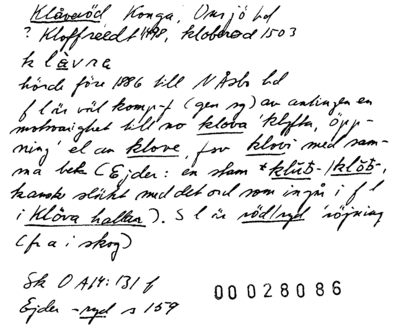 Klåveröd, Konga, Onsjö hd
? Kloffreedt 1498, kloberød 1503
klåvra
hörde före 1886 till N Åsbo hd
f l är väl komp-f (gen sg) av antingen en
motsvarighet till no klova 'klyfta, öpp-
ning' el av klove, fsv klovi med sam-
ma bet (Ejder: en stam *kluƀ- / klōƀ-,
kanske släkt med det ord som ingår i f l
i Klöva hallar). S l är röd/ryd 'röjning
(fr a i skog)
Sk O A14: 131 f
Ejder -ryd s 159
00028086